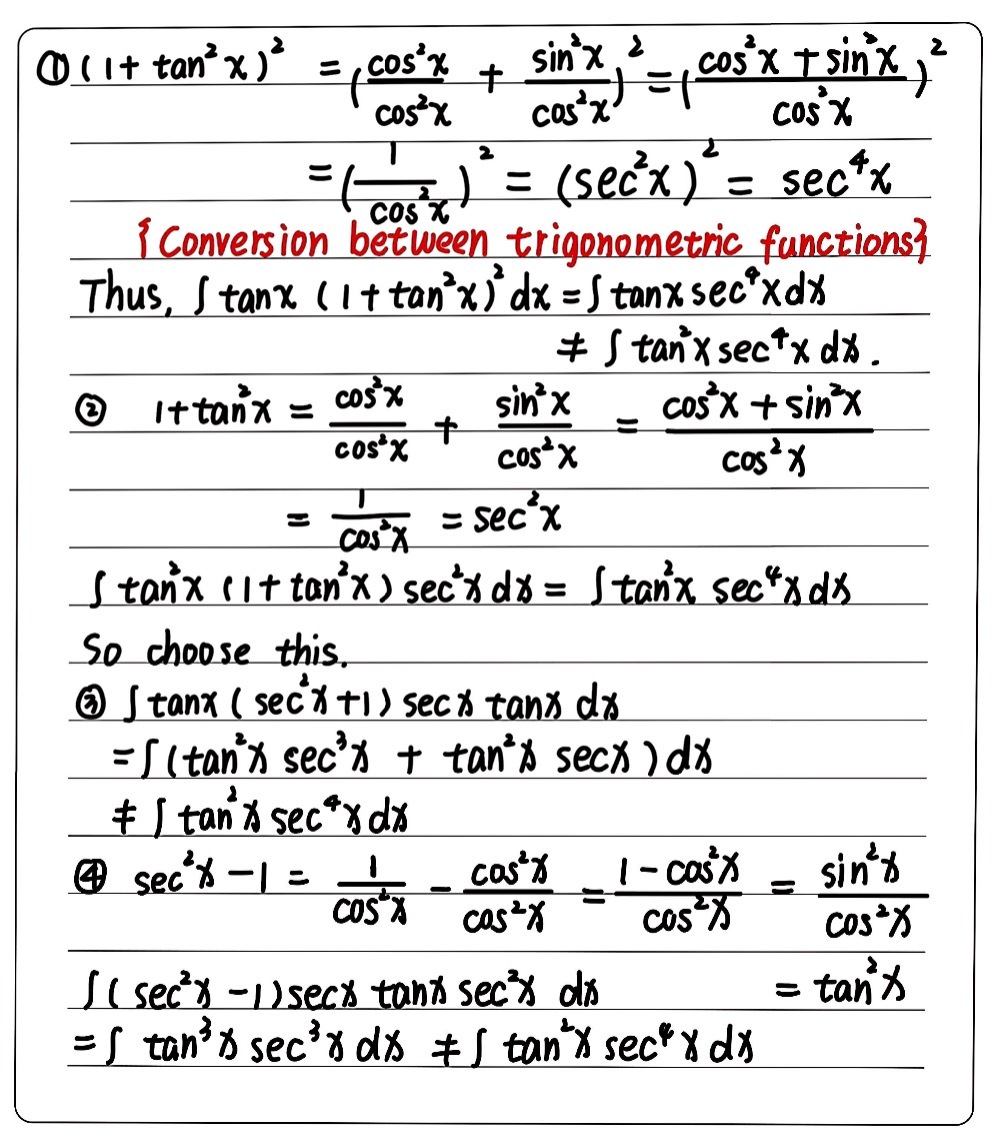 ① (1 + tan²x)² = (cos²x/cos²x + sin²x/cos²x)² = (cos²x + sin²x/cos²x)²
= (1/cos²x)² = (sec²x)² = sec⁴x
{Conversion between trigonometric functions}
Thus, ∫ tanx (1 + tan²x)² dx = ∫ tanx sec⁴x dx
≠ ∫ tan²x sec⁴x dx.
② 1 + tan²x = cos²x/cos²x + sin²x/cos²x = cos²x + sin²x/cos²x
= 1/cos²x = sec²x
∫ tan²x (1 + tan²x) sec²x dx = ∫ tan²x sec⁴x dx
So choose this.
③ ∫ tanx (sec²x + 1) secx tanx dx
= ∫ (tan²x sec³x + tan²x secx) dx
≠ ∫ tan²x sec⁴x dx
④ sec²x - 1 = 1/cos²x - cos²x/cos²x = 1 - cos²x/cos²x = sin²x/cos²x
= tan²x
∫ (sec²x - 1) secx tanx sec²x dx
= ∫ tan³x sec³x dx ≠ ∫ tan²x sec⁴x dx